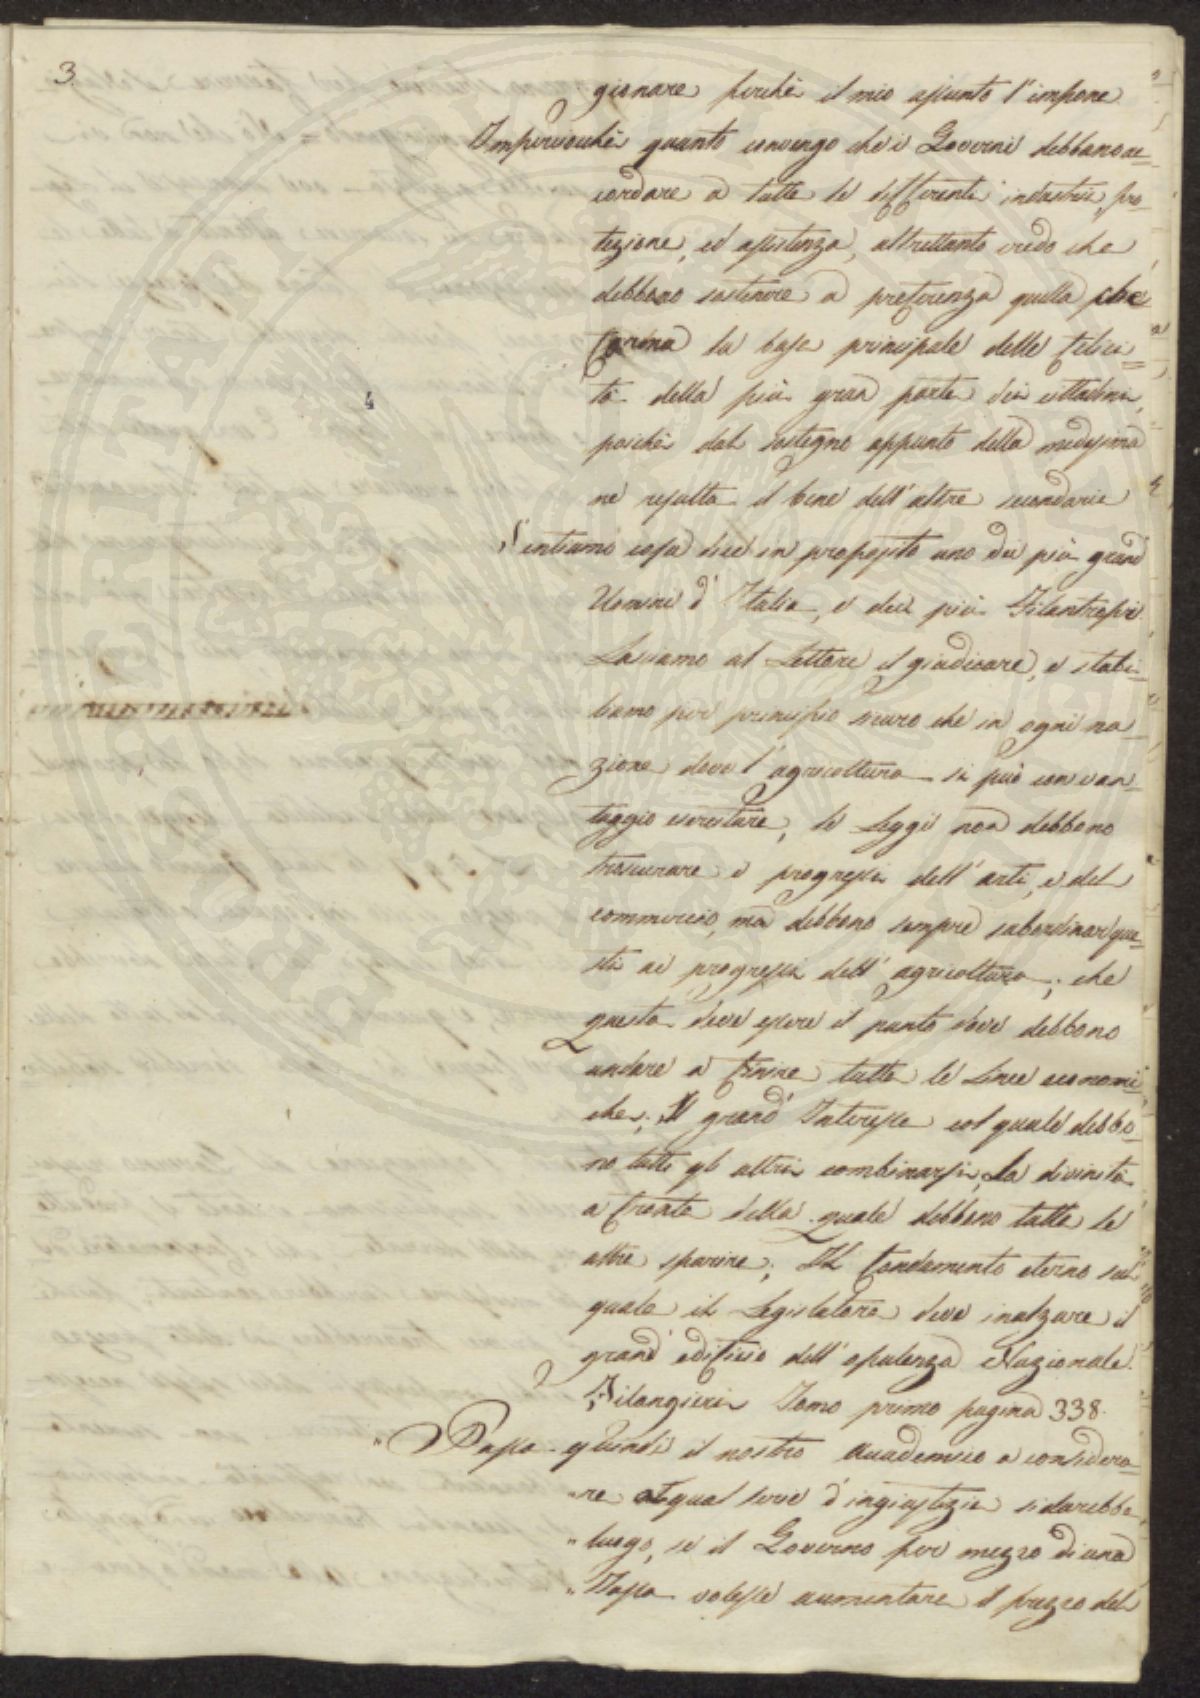 3.
gionare perchè il mio assunto l'impone
Imperciocchè quanto convengo che i Governi debbano ac=
cordare a tutte le differenti industrie pro=
tezione, ed assistenza, altrettanto credo che
debbono sostenere a preferenza quella che
forma la base principale delle felici=
tà della più gran parte dei cittadini,
poichè dal sostegno appunto della medesima
ne resulta il bene dell'altre secondarie
Sentiamo cosa dice in proposito uno dei più grand'
Uomini d'Italia, e dei più Filantropi.
Lasciamo al Lettore il giudicare, e stabi=
liamo per principio sicuro che in ogni na=
zione dove l'agricoltura si può con van=
taggio esercitare, le Leggi non debbono
trascurare i progressi dell'arti, e del
commercio, ma debbono sempre subordinar que=
sti ai progressi dell'agricoltura; che
questa deve essere il punto dove debbono
andare a finire tutte le linee economi=
che; Il grand'Interesse col quale debbo=
no tutti gli altri combinarsi; La divinità
a fronte della quale debbono tutte le
altre sparire; Il fondamento eterno sul
quale il Legislatore deve inalzare il
grand'edificio dell'opulenza Nazionale.
Filangieri Tomo primo pagina 338.
" Passa quindi il nostro Accademico a considera=
" re a qual sorte d'ingiustizie si darebbe
" luogo, se il Governo per mezzo di una
" Tassa volesse aumentare il prezzo del
4